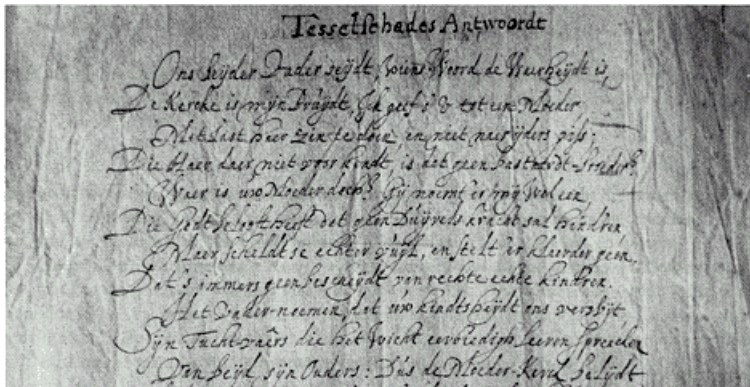 Tesselschades Antwoordt
Ons beyder Vader seydt, wiens Woord de Waerheydt is,
De Kercke is mijn Bruydt, Ick geef s' u tot een Moeder
Met last haer zin te doen, en niet naer yders
Die Haer daer niet voor kendt, is dat geen bastaerdt-broeder?
Waer is uw Moeder doch? Gij noemt er mij wel een,
Die Godt belooft heeft dat geen Duyvels kracht sal hind'ren
Maer scheldt se echter vuyl, en stelt er klaerder geen,
Dat's immers geen bescheydt van rechte echte kind'ren.
Het Vader-noemen, dat uw ons verwijt
Sijn Tucht-vaêrs die het Wicht eenvoudigh leeren spreecken
Van beyd sijn Ouders: Dus de Moeder-Kerck belijdt